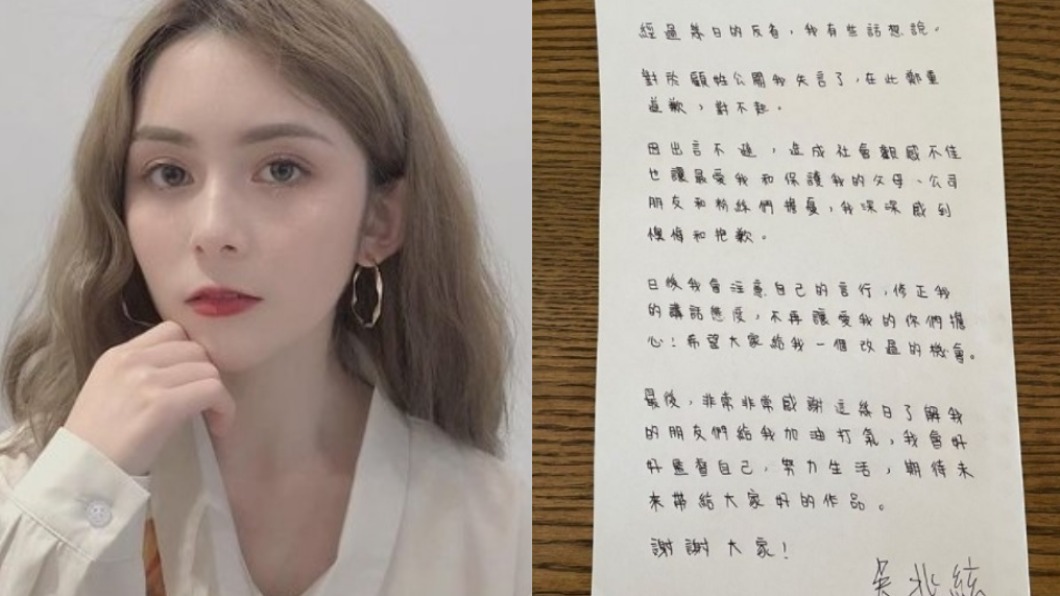 經過幾日的反省，我有些話想說。
對於顧姓公關我失言了，在此鄭重
道歉，對不起。
因出言不遜，造成社會觀感不佳
也讓最愛我和保護我的父母、公司
朋友和粉絲們擔憂，我深深感到
懊悔和抱歉。
日後我會注意自己的言行，修正我
的講話態度，不再讓愛我的你們擔
心！希望大家給我一個改過的機會。
最後，非常非常感謝這幾日了解我
的朋友們給我加油打氣，我會好
好監督自己，努力生活，期待未
來帶給大家好的作品。
謝謝大家！